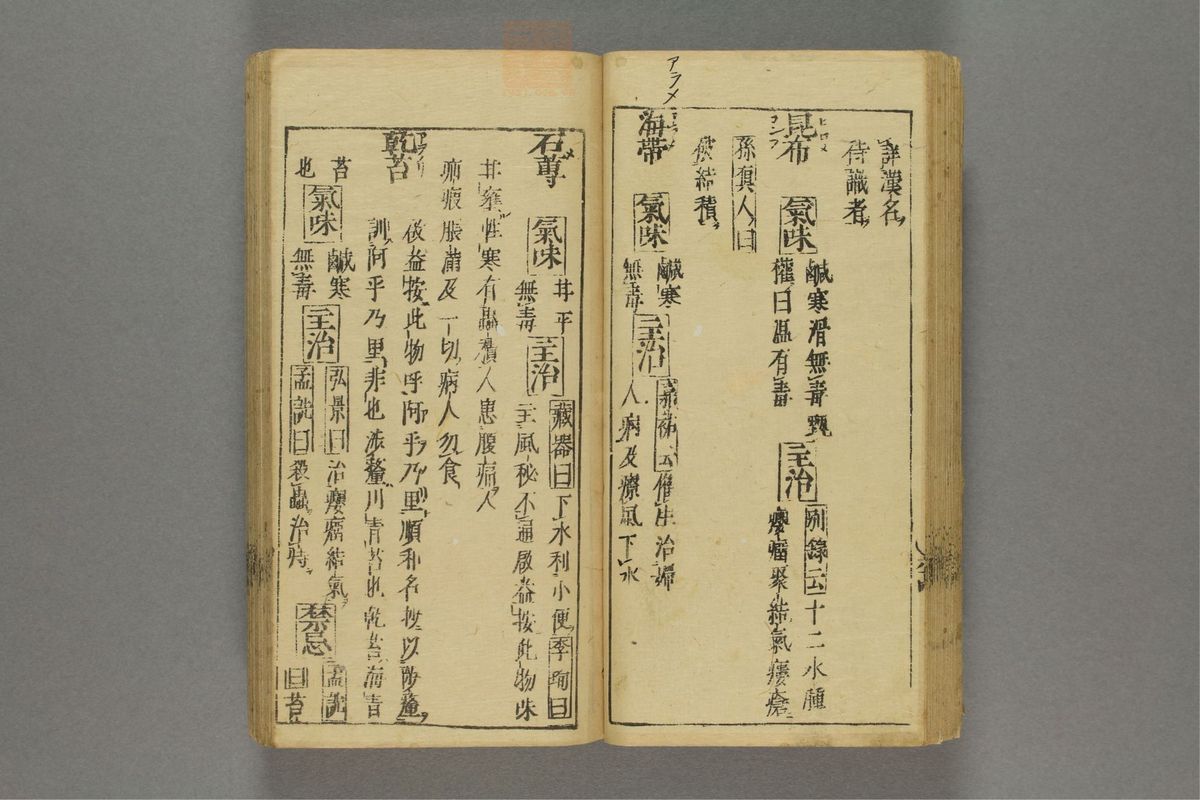 詳漢名
待識者
昆布 氣味 鹹寒滑無毒甄
權曰温有毒 主治 別錄云十二水腫
癭瘤聚結氣瘻瘡
孫真人曰
破結積
アラメ
海帶 氣味 鹹寒
無毒 主治 嘉祐云催生治婦
人病及療風下水
石蓴 氣味 甘平
無毒 主治 藏器曰下水利小便李珣曰
主風秘不通啟益按此物味
甘性寒有蟲積人患腹痛人
痢疾脹滿及一切病人勿食
乾苔
啟益按此物呼阿乎乃里順和名抄以
訓阿乎乃里非也 川青苔也乾苔海青
苔 氣味 鹹寒
也 無毒 主治 弘景曰治癭瘤結氣
孟詵曰殺蟲治痔 禁忌 孟詵
曰苔